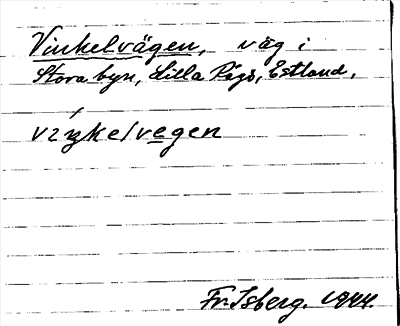 Vinkelvägen, väg i
Stora byn, Lilla Rågö, Estland,
vıŋkelvegen
Fr. Isberg. 1944.